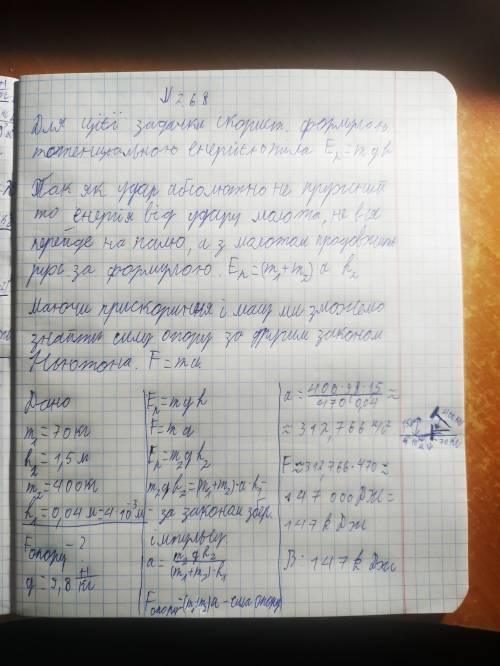 № 268
Для цієї задачки скорист. формулою
потенціальною енергією тіла Eп = mgh
Так як удар абсолютно не пружний
то енергія від удару молота, не вся
перейде на палю, а з молотом продовжить
рух за формулою. Eп = (m₁+m₂) a h₂
Маючи прискорення і масу ми зможемо
знайти силу опору за другим законом
Ньютона. F = ma
Дано
m₁ = 70 кг
h₂ = 1,5 м
m₂ = 400 кг
h₁ = 0,04 м = 4·10⁻³ м
Fопору - ?
g = 9,8 Н/кг
Eп = mgh
F = ma
Eп = m₂gh₂
m₂gh₂ = (m₁+m₂)·a·h₁ =
- за законом збер.
імпульсу
a = m₂gh₂/(m₁+m₂)·h₁
Fопору = (m₁+m₂)a - сила опору
a = 400·9,8·1,5/470·0,04 ≈
≈ 312,766 м/с²
F ≈ 312,766·470 ≈
147 000 Дж =
147 кДж
В: 147 кДж